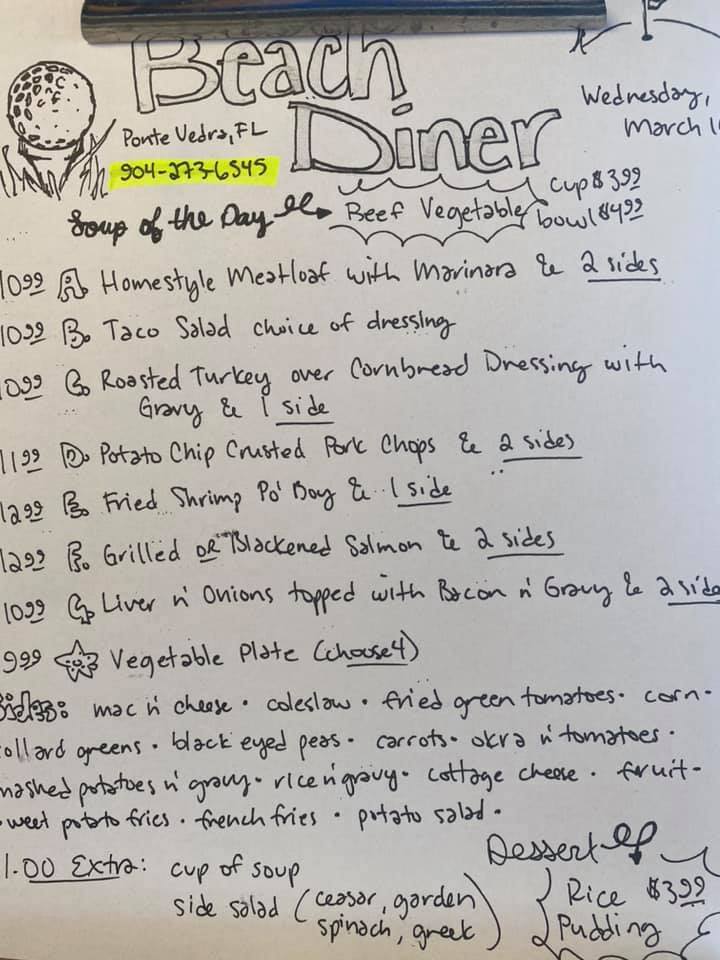 Beach
Diner
Ponte Vedra, FL
904-273-6545
Wednesday,
March 1
Soup of the Day → Beef Vegetable cup $3.99
bowl $4.99
10.99 A. Homestyle Meatloaf with Marinara & 2 sides
10.99 B. Taco Salad choice of dressing
10.99 C. Roasted Turkey over Cornbread Dressing with
Gravy & 1 side
11.99 D. Potato Chip Crusted Pork Chops & 2 sides
12.99 E. Fried Shrimp Po' Boy & 1 side
12.99 F. Grilled OR Blackened Salmon & 2 sides
10.99 G. Liver n' Onions topped with Bacon n' Gravy & 2 side
9.99 Vegetable Plate (choose 4)
Sides: mac n' cheese • coleslaw • fried green tomatoes • corn •
ollard greens • black eyed peas • carrots • okra n' tomatoes •
mashed potatoes n' gravy • rice n' gravy • cottage cheese • fruit •
weet potato fries • french fries • potato salad •
1.00 Extra: cup of soup
side salad (ceasar, garden
spinach, greek)
Dessert
Rice $3.99
Pudding